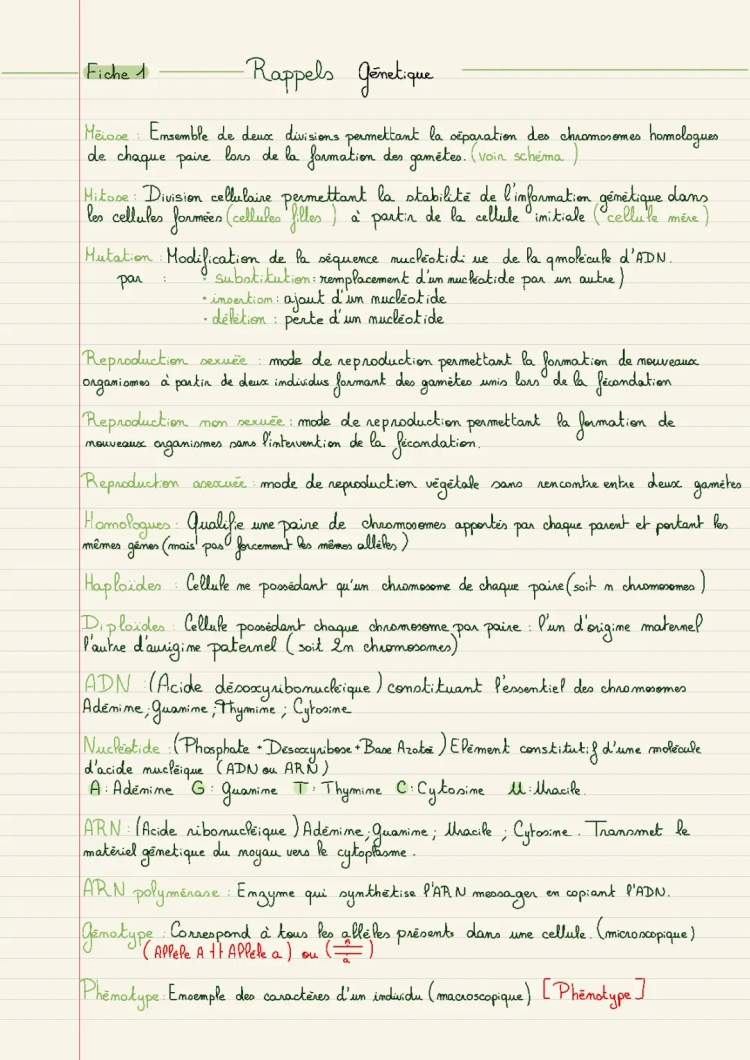 Fiche 1 Rappels génetique
Méiose : Ensemble de deux divisions permettant la séparation des chromosomes homologues
de chaque paire lors de la formation des gamètes. (voir schéma)
Mitose : Division cellulaire permettant la stabilité de l'information génétique dans
les cellules formées (cellules filles) à partir de la cellule initiale (cellule mère)
Mutation : Modification de la séquence nucléotidi ue de la qmolécule d'ADN.
par : • substitution : remplacement d'un nucléotide par un autre)
• insertion : ajout d'un nucléotide
• délétion : perte d'un nucléotide
Reproduction sexuée : mode de reproduction permettant la formation de nouveaux
organismes à partir de deux individus formant des gamètes unis lors de la fécondation
Reproduction non sexuée : mode de reproduction permettant la formation de
nouveaux organismes sans l'intervention de la fécondation.
Reproduction asexuée : mode de reproduction végétale sans rencontre entre deux gamètes
Homologues : Qualifie une paire de chromosomes apportés par chaque parent et portant les
mêmes gènes (mais pas forcement les mêmes allèles)
Haploïdes : Cellule ne possédant qu'un chromosome de chaque paire (soit n chromosomes)
Diploïdes : Cellule possédant chaque chromosome par paire : l'un d'origine maternel
l'autre d'aurigine paternel (soit 2n chromosomes)
ADN : (Acide désoxyribonucléique) constituant l'essentiel des chromosomes
Adénine ; Guanine ; Thymine ; Cytosine
Nucléotide : (Phosphate + Desoxyribose + Base Azotée) Elément constitutif d'une molécule
d'acide nucléique (ADN ou ARN)
A : Adénine G : Guanine T : Thymine C : Cytosine U : Uracile.
ARN : (Acide ribonucléique) Adénine ; Guanine ; Uracile ; Cytosine. Transmet le
matériel génetique du noyau vers le cytoplasme.
ARN polymérase : Enzyme qui synthétise l'ARN messager en copiant l'ADN.
Génotype : Correspond à tous les allèles présents dans une cellule. (microscopique)
(Allèle A ++ Allèle a) ou (A/a)
Phénotype : Ensemple des caractères d'un individu (macroscopique) [Phénotype]